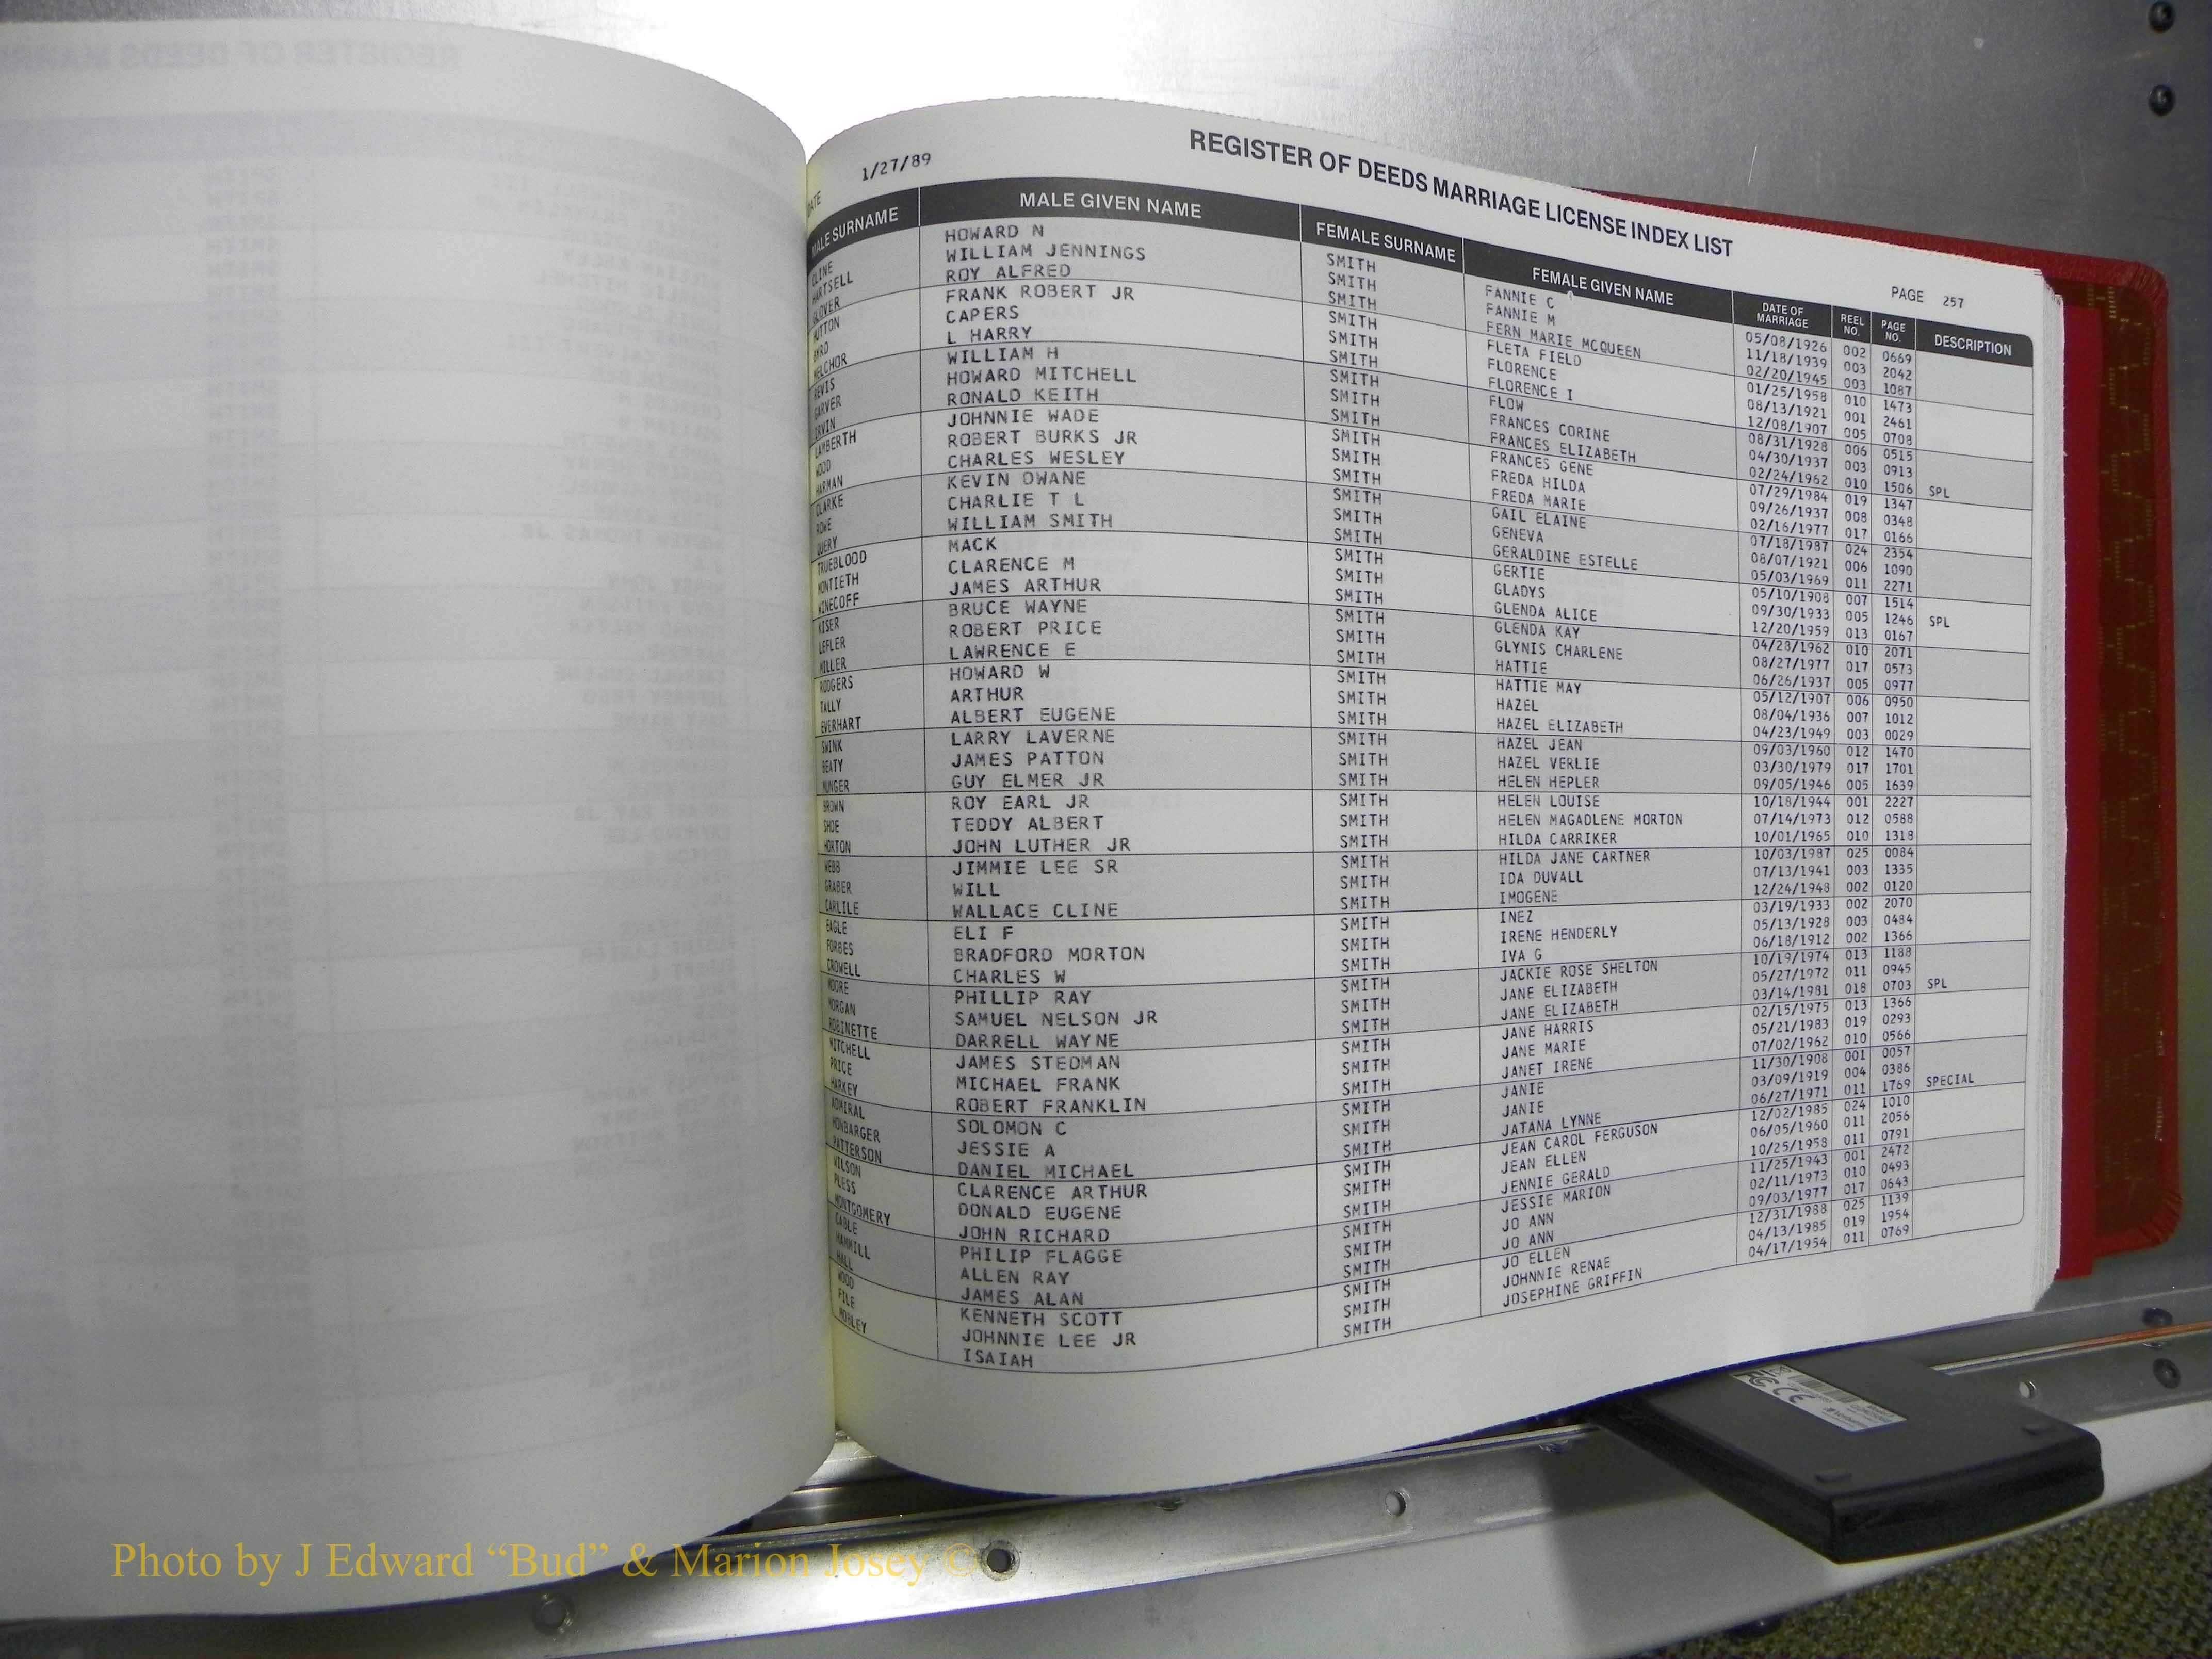 REGISTER OF DEEDS MARRIAGE LICENSE INDEX LIST
DATE 1/27/89 PAGE 257
MALE SURNAME MALE GIVEN NAME FEMALE SURNAME FEMALE GIVEN NAME DATE OF MARRIAGE REEL NO. PAGE NO. DESCRIPTION
CLINE HOWARD N SMITH FANNIE C 05/08/1926 002 0669
HARTSELL WILLIAM JENNINGS SMITH FANNIE M 11/18/1939 003 2042
GLOVER ROY ALFRED SMITH FERN MARIE MCQUEEN 02/20/1945 003 1087
HUTTON FRANK ROBERT JR SMITH FLETA FIELD 01/25/1958 010 1473
BYRD CAPERS SMITH FLORENCE 08/13/1921 001 2461
MELCHOR L HARRY SMITH FLORENCE I 12/08/1907 005 0708
REVIS WILLIAM H SMITH FLOW 08/31/1928 006 0515
GARVER HOWARD MITCHELL SMITH FRANCES CORINE 04/30/1937 003 0913
IRVIN RONALD KEITH SMITH FRANCES ELIZABETH 02/24/1962 010 1506 SPL
LAMBERTH JOHNNIE WADE SMITH FRANCES GENE 07/29/1984 019 1347
WOOD ROBERT BURKS JR SMITH FREDA HILDA 09/26/1937 008 0348
HARMAN CHARLES WESLEY SMITH FREDA MARIE 02/16/1977 017 0166
CLARKE KEVIN DWANE SMITH GAIL ELAINE 07/18/1987 024 2354
ROWE CHARLIE T L SMITH GENEVA 08/07/1921 006 1090
QUERY WILLIAM SMITH SMITH GERALDINE ESTELLE 05/03/1969 011 2271
TRUEBLOOD MACK SMITH GERTIE 05/10/1908 007 1514
MONTIETH CLARENCE M SMITH GLADYS 09/30/1933 005 1246 SPL
WINECOFF JAMES ARTHUR SMITH GLENDA ALICE 12/20/1959 013 0167
KISER BRUCE WAYNE SMITH GLENDA KAY 04/28/1962 010 2071
LEFLER ROBERT PRICE SMITH GLYNIS CHARLENE 08/27/1977 017 0573
MILLER LAWRENCE E SMITH HATTIE 06/26/1937 005 0977
RODGERS HOWARD W SMITH HATTIE MAY 05/12/1907 006 0950
TALLY ARTHUR SMITH HAZEL 08/04/1936 007 1012
EVERHART ALBERT EUGENE SMITH HAZEL ELIZABETH 04/23/1949 003 0029
SWINK LARRY LAVERNE SMITH HAZEL JEAN 09/03/1960 012 1470
BEATY JAMES PATTON SMITH HAZEL VERLIE 03/30/1979 017 1701
MUNGER GUY ELMER JR SMITH HELEN HEPLER 09/05/1946 005 1639
BROWN ROY EARL JR SMITH HELEN LOUISE 10/18/1944 001 2227
SHOE TEDDY ALBERT SMITH HELEN MAGADLENE MORTON 07/14/1973 012 0588
HORTON JOHN LUTHER JR SMITH HILDA CARRIKER 10/01/1965 010 1318
WEBB JIMMIE LEE SR SMITH HILDA JANE CARTNER 10/03/1987 025 0084
GRABER WILL SMITH IDA DUVALL 07/13/1941 003 1335
CARLILE WALLACE CLINE SMITH IMOGENE 12/24/1948 002 0120
EAGLE ELI F SMITH INEZ 03/19/1933 002 2070
FORBES BRADFORD MORTON SMITH IRENE HENDERLY 05/13/1928 003 0484
CROWELL CHARLES W SMITH IVA G 06/18/1912 002 1366
MOORE PHILLIP RAY SMITH JACKIE ROSE SHELTON 10/19/1974 013 1188
MORGAN SAMUEL NELSON JR SMITH JANE ELIZABETH 05/27/1972 011 0945
ROBINETTE DARRELL WAYNE SMITH JANE ELIZABETH 03/14/1981 018 0703 SPL
MITCHELL JAMES STEDMAN SMITH JANE HARRIS 02/15/1975 013 1366
PRICE MICHAEL FRANK SMITH JANE MARIE 05/21/1983 019 0293
HARKEY ROBERT FRANKLIN SMITH JANET IRENE 07/02/1962 010 0566
ADMIRAL SOLOMON C SMITH JANIE 11/30/1908 001 0057
HONBARGER JESSIE A SMITH JANIE 03/09/1919 004 0386
PATTERSON DANIEL MICHAEL SMITH JATANA LYNNE 06/27/1971 011 1769 SPECIAL
WILSON CLARENCE ARTHUR SMITH JEAN CAROL FERGUSON 12/02/1985 024 1010
PLESS DONALD EUGENE SMITH JEAN ELLEN 06/05/1960 011 2056
MONTGOMERY JOHN RICHARD SMITH JENNIE GERALD 10/25/1958 011 0791
CABLE PHILIP FLAGGE SMITH JESSIE MARION 11/25/1943 001 2472
HAMMILL ALLEN RAY SMITH JO ANN 02/11/1973 010 0493
HALL JAMES ALAN SMITH JO ANN 09/03/1977 017 0643
WOOD KENNETH SCOTT SMITH JO ELLEN 12/31/1988 025 1139
FILE JOHNNIE LEE JR SMITH JOHNNIE RENAE 04/13/1985 019 1954
MOBLEY ISAIAH SMITH JOSEPHINE GRIFFIN 04/17/1954 011 0769
Photo by J Edward “Bud” & Marion Josey ©